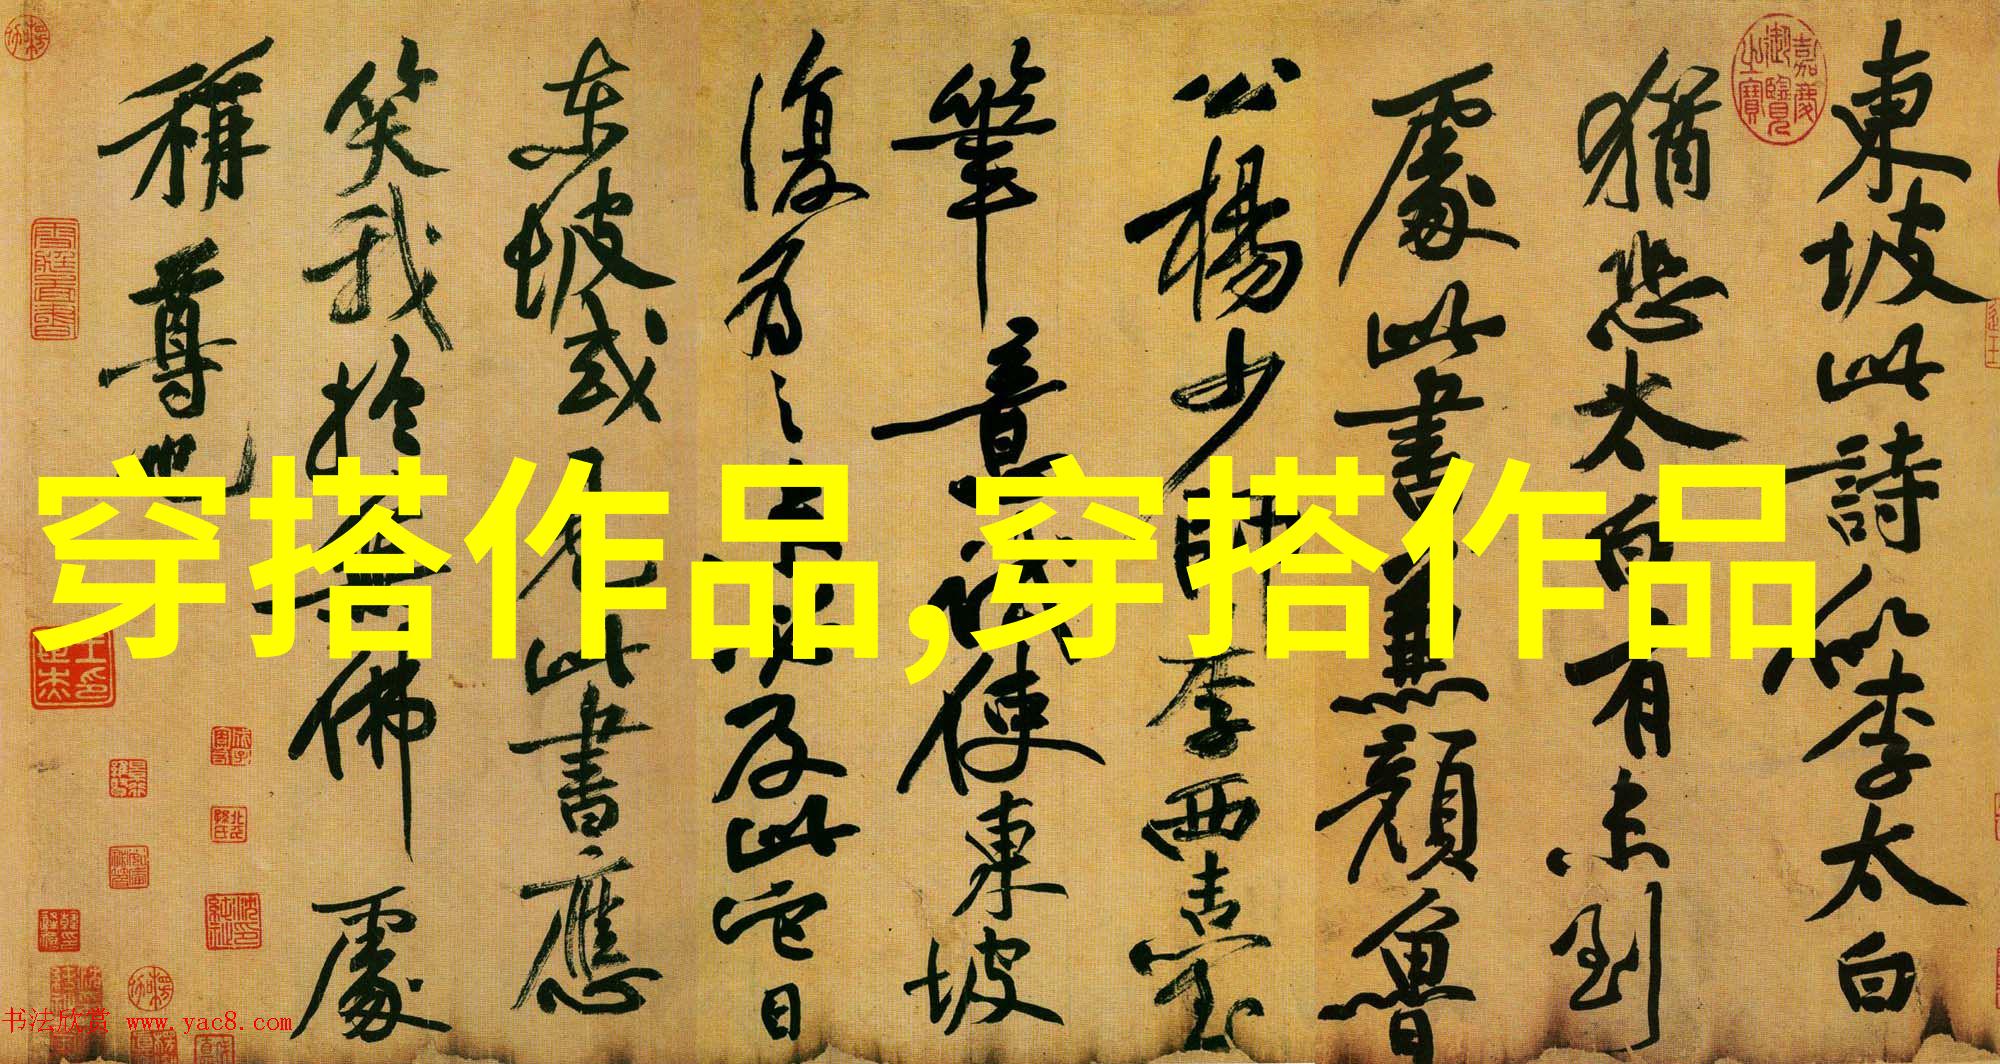 東坡此詩似李太白
猶恐太白有未到
處此書兼顏魯
公楊少師李西臺
筆意試使東坡
復為之未必及此它日
東坡或見此書應
笑我於無佛處
稱尊也
穿搭作品,穿搭作品
嘉慶御覽之寶
书法欣赏 www.yac8.com